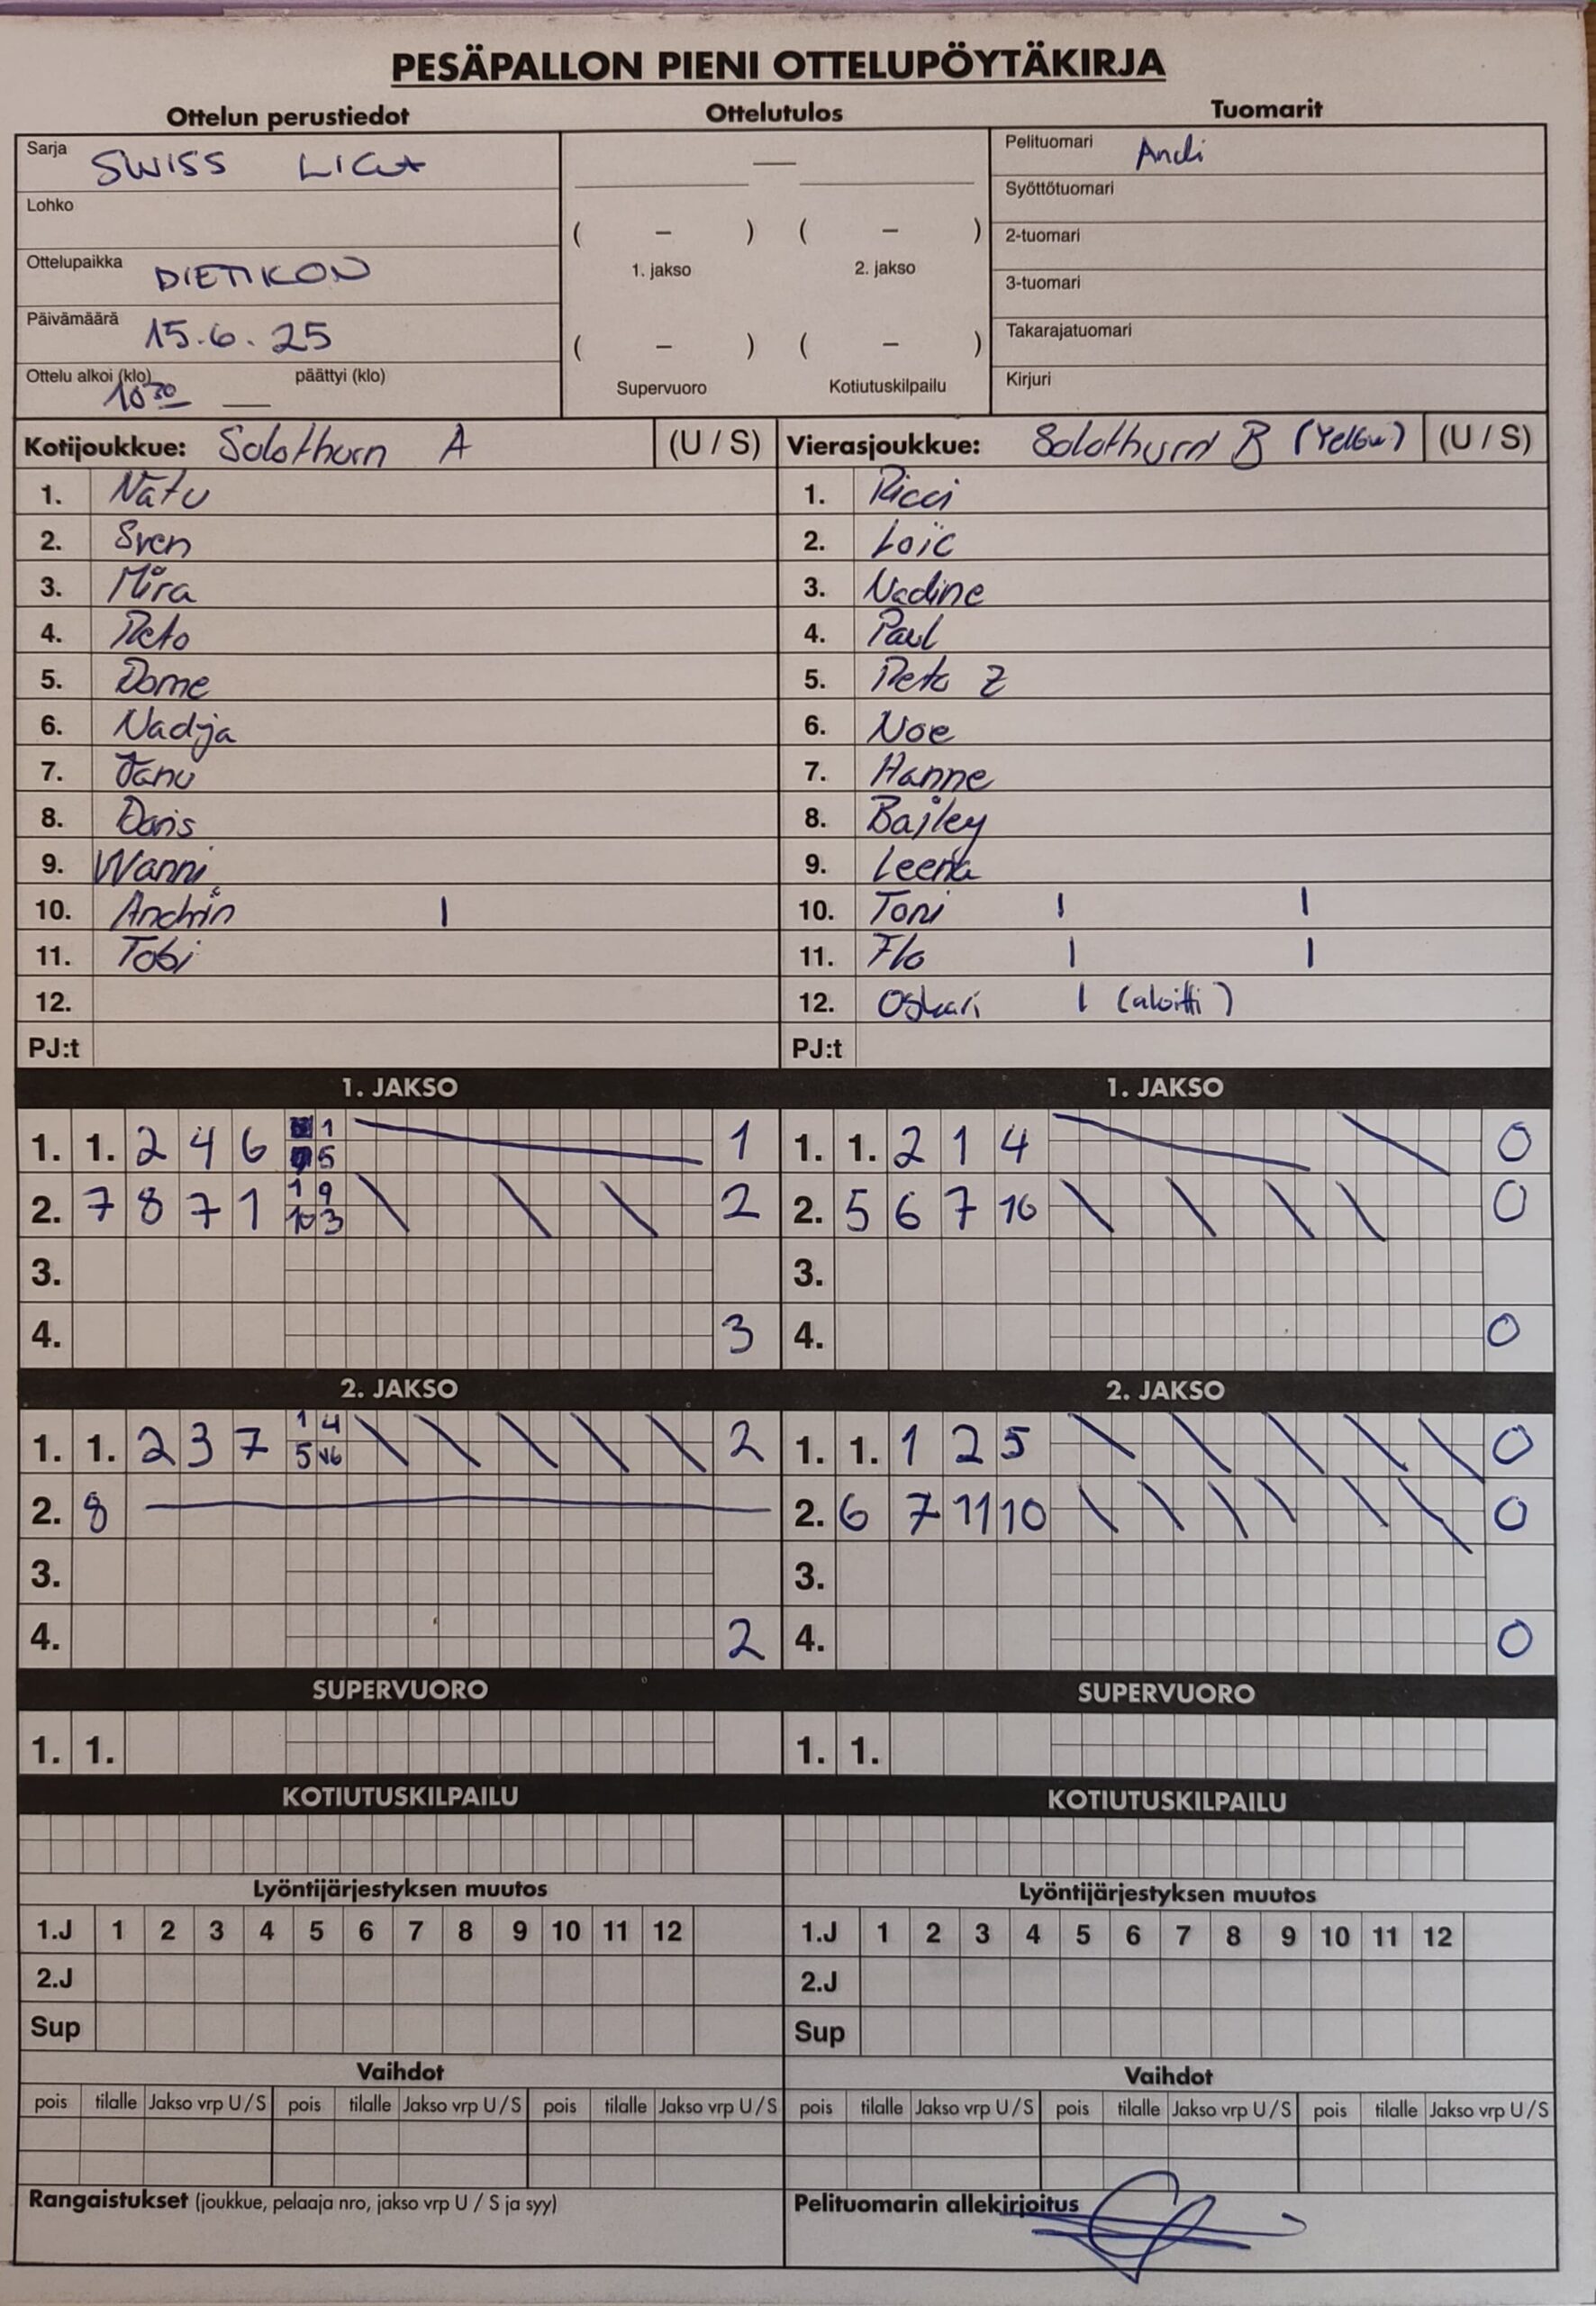 PESÄPALLON PIENI OTTELUPÖYTÄKIRJA
Ottelun perustiedot Ottelutulos Tuomarit
Sarja SWISS LIGA
Lohko
Ottelupaikka DIETIKON
Päivämäärä 15.6.25
Ottelu alkoi (klo) 10 30 päättyi (klo)
—
( – ) ( – )
1. jakso 2. jakso
( – ) ( – )
Supervuoro Kotiutuskilpailu
Pelituomari Andi
Syöttötuomari
2-tuomari
3-tuomari
Takarajatuomari
Kirjuri
Kotijoukkue: Solothurn A (U / S)
1. Nätu
2. Sven
3. Mira
4. Reto
5. Dome
6. Nadja
7. Janu
8. Doris
9. Wanni
10. Andrin I
11. Tobi
12.
PJ:t
Vierasjoukkue: Solothurn B (Yellow) (U / S)
1. Ricci
2. Loïc
3. Nadine
4. Paul
5. Reto Z
6. Noe
7. Hanne
8. Bailey
9. Leena
10. Toni I I
11. Flo I I
12. Oskari I (aloitti)
PJ:t
1. JAKSO
1. 1. 2 4 6 1 5 1
2. 7 8 7 1 1 9 10 3 2
3.
4. 3
1. JAKSO
1. 1. 2 1 4 0
2. 5 6 7 10 0
3.
4. 0
2. JAKSO
1. 1. 2 3 7 1 4 5 V6 2
2. 8
3.
4. 2
2. JAKSO
1. 1. 1 2 5 0
2. 6 7 11 10 0
3.
4. 0
SUPERVUORO
1. 1.
SUPERVUORO
1. 1.
KOTIUTUSKILPAILU
KOTIUTUSKILPAILU
Lyöntijärjestyksen muutos
1.J 1 2 3 4 5 6 7 8 9 10 11 12
2.J
Sup
Lyöntijärjestyksen muutos
1.J 1 2 3 4 5 6 7 8 9 10 11 12
2.J
Sup
Vaihdot
pois tilalle Jakso vrp U / S pois tilalle Jakso vrp U / S pois tilalle Jakso vrp U / S
Vaihdot
pois tilalle Jakso vrp U / S pois tilalle Jakso vrp U / S pois tilalle Jakso vrp U / S
Rangaistukset (joukkue, pelaaja nro, jakso vrp U / S ja syy)
Pelituomarin allekirjoitus